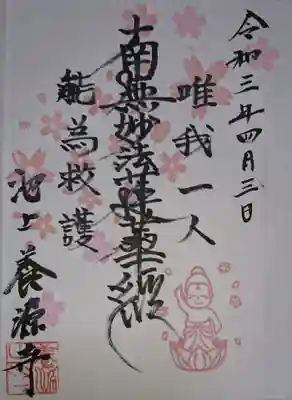 令和三年四月三日
唯我一人
南無妙法蓮華経
能為救護
池上 養源寺